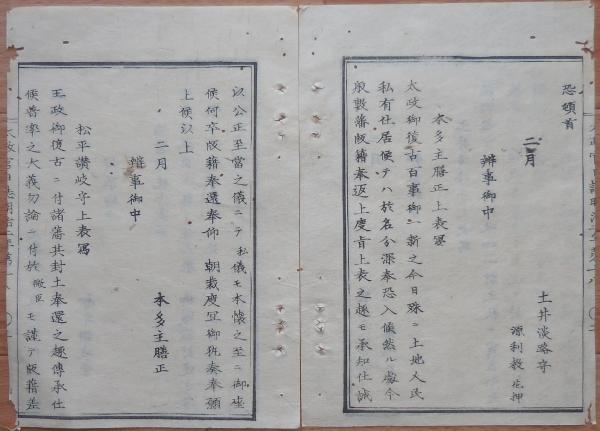 恐頓首
二月
辨事御中
土井淡路守
源利教 花押
本多主膳正上表寫
太政御復古百事御一新之今日殊ニ土地人民
私有仕居候テハ於名分深奉恐入候然ル處今
般數藩版籍奉返上度旨上表之趣モ承知仕誠
以公正至當之儀ニテ私儀モ本懷之至ニ御座
候何卒版籍奉還奉仰 朝裁度宜御執奏奉願
上候以上
二月
本多主膳正
辨事御中
松平讃岐守上表寫
王政御復古ニ付諸藩共封土奉還之趣傳承仕
候普率之大義勿論ニ付於微臣モ謹テ版籍差